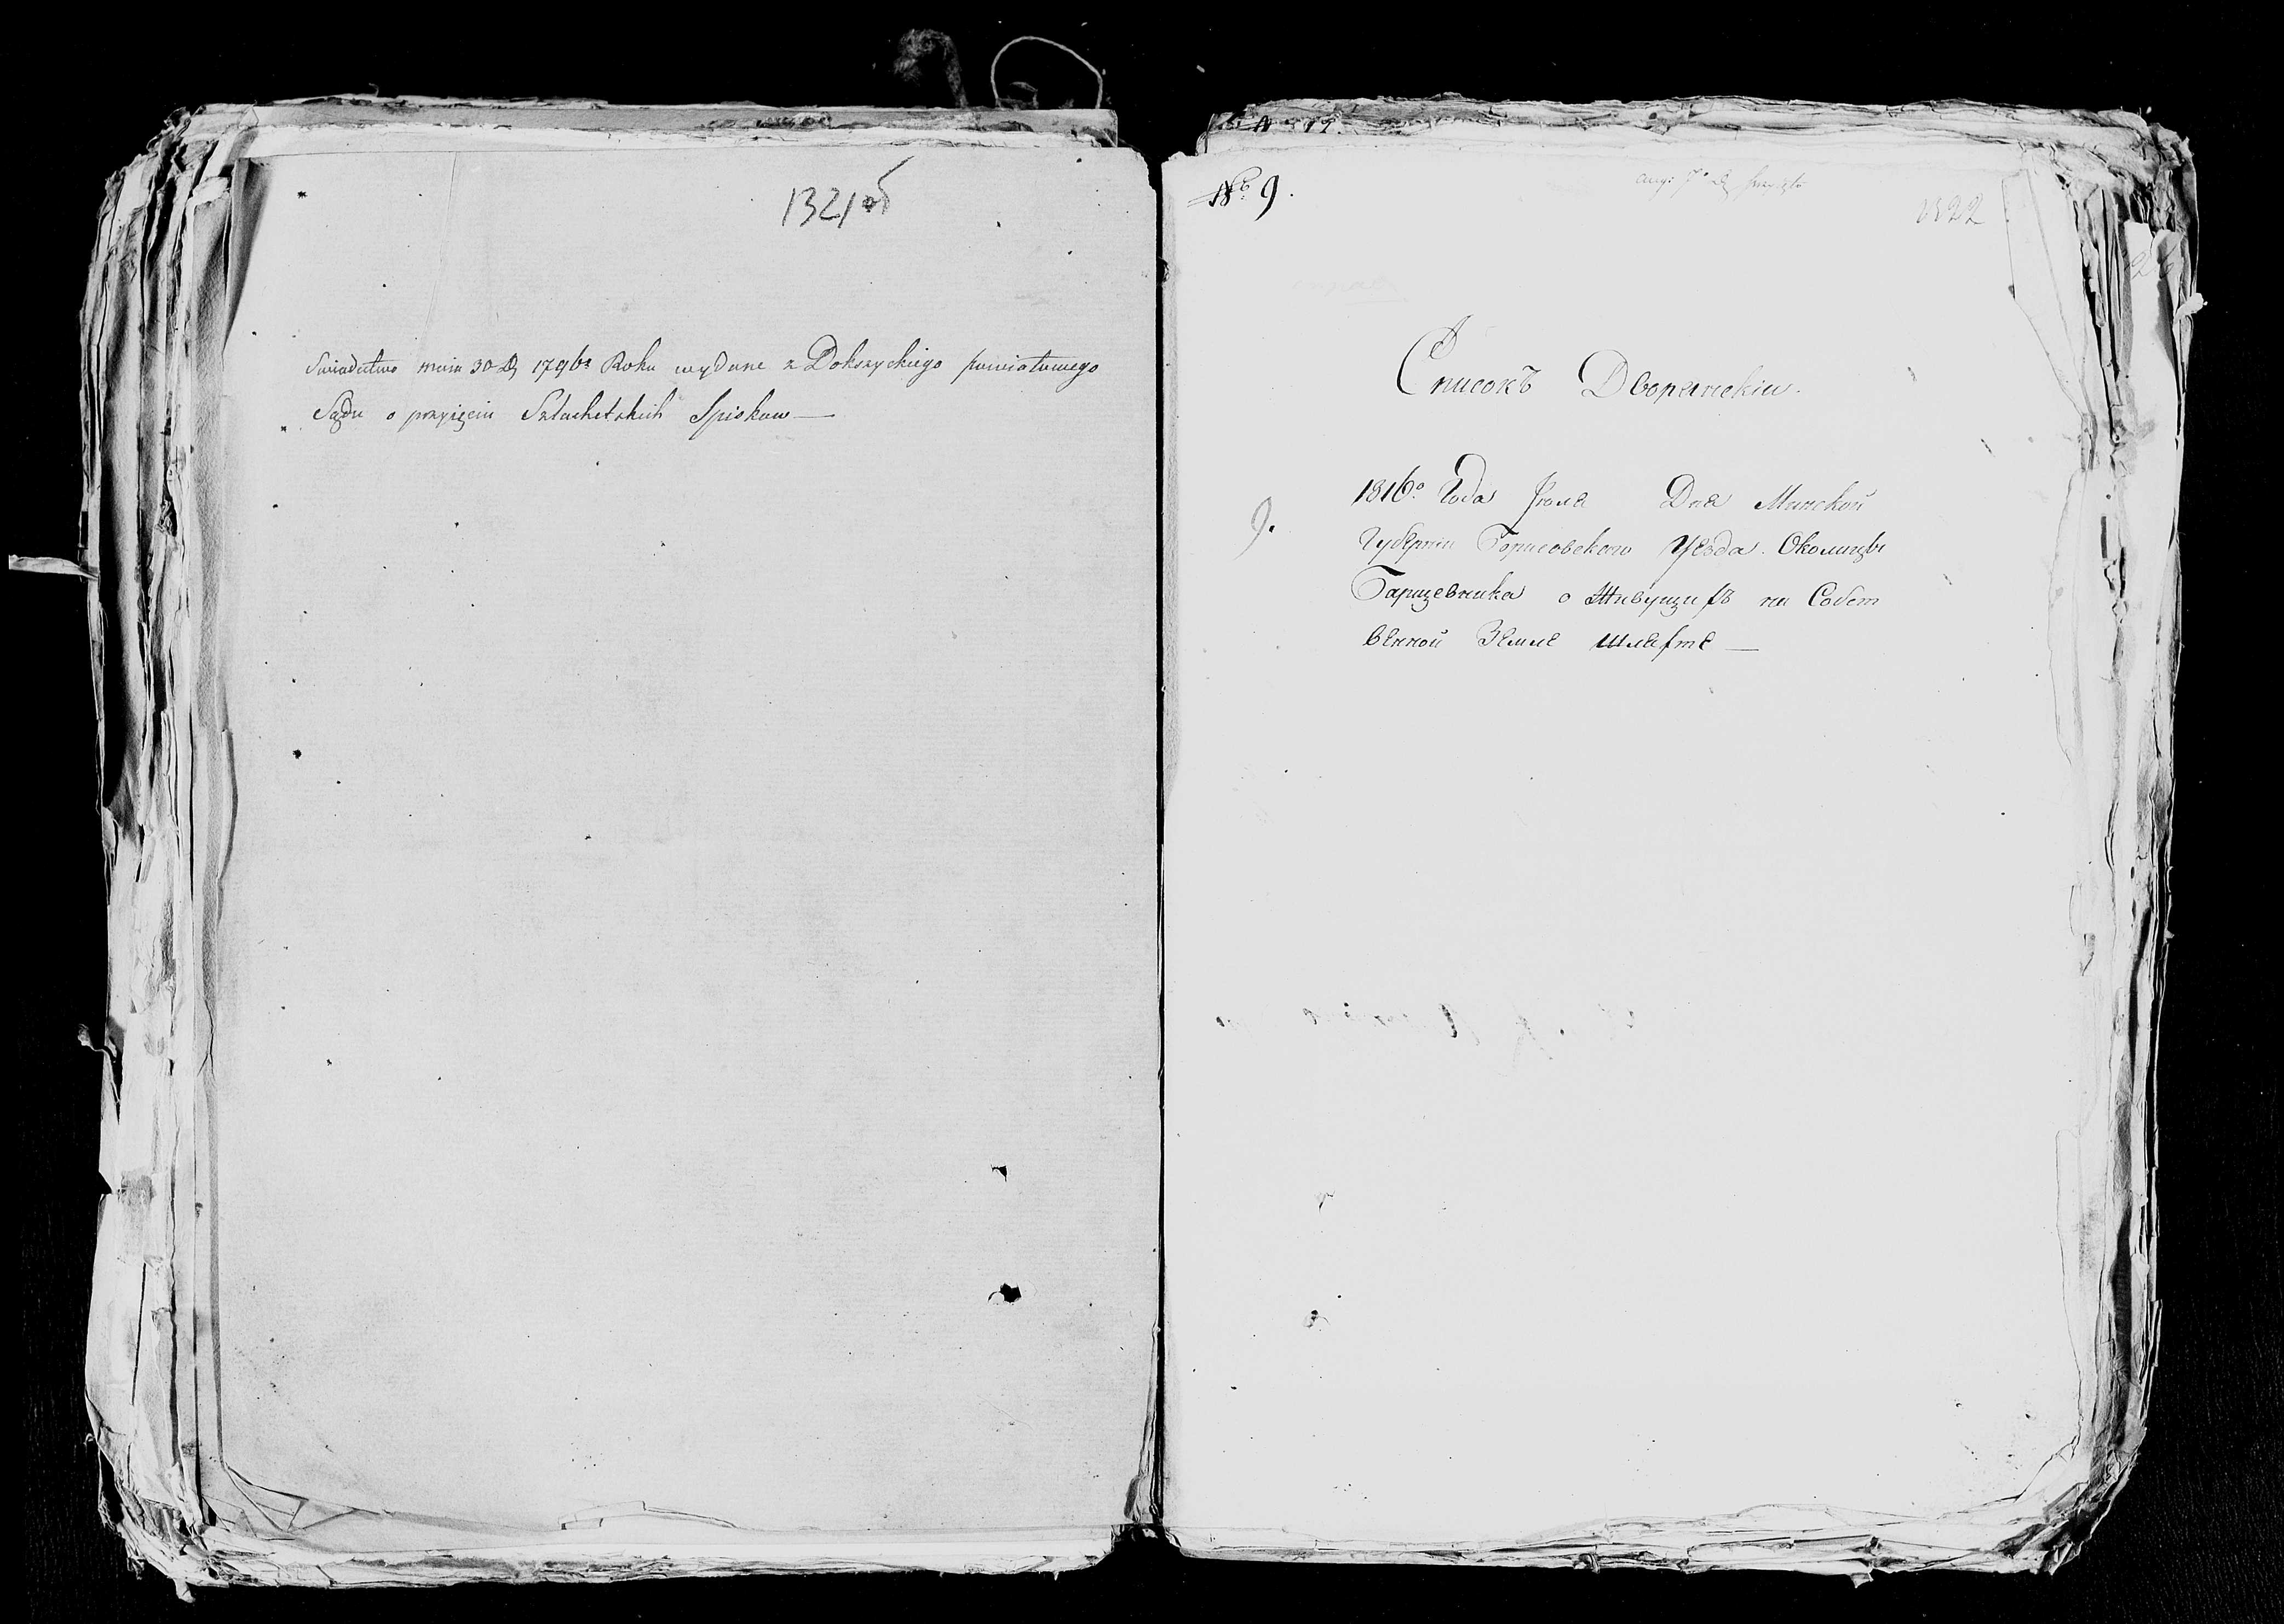 1321об
Swiadectwo maia 30 D 1796º Roku wydane z Dokszyckiego powiatowego
Sądu o przyięciu Szlachetskich Spiskow —
№ 9.
1322
Списокъ Дворянскiи.
1816º Года Iюля Дня Минской
9.
Губернiи Борисовского Уѣзда. Околицы
Барщевника о Живущихъ на Собст
венной Землѣ шляхтѣ —